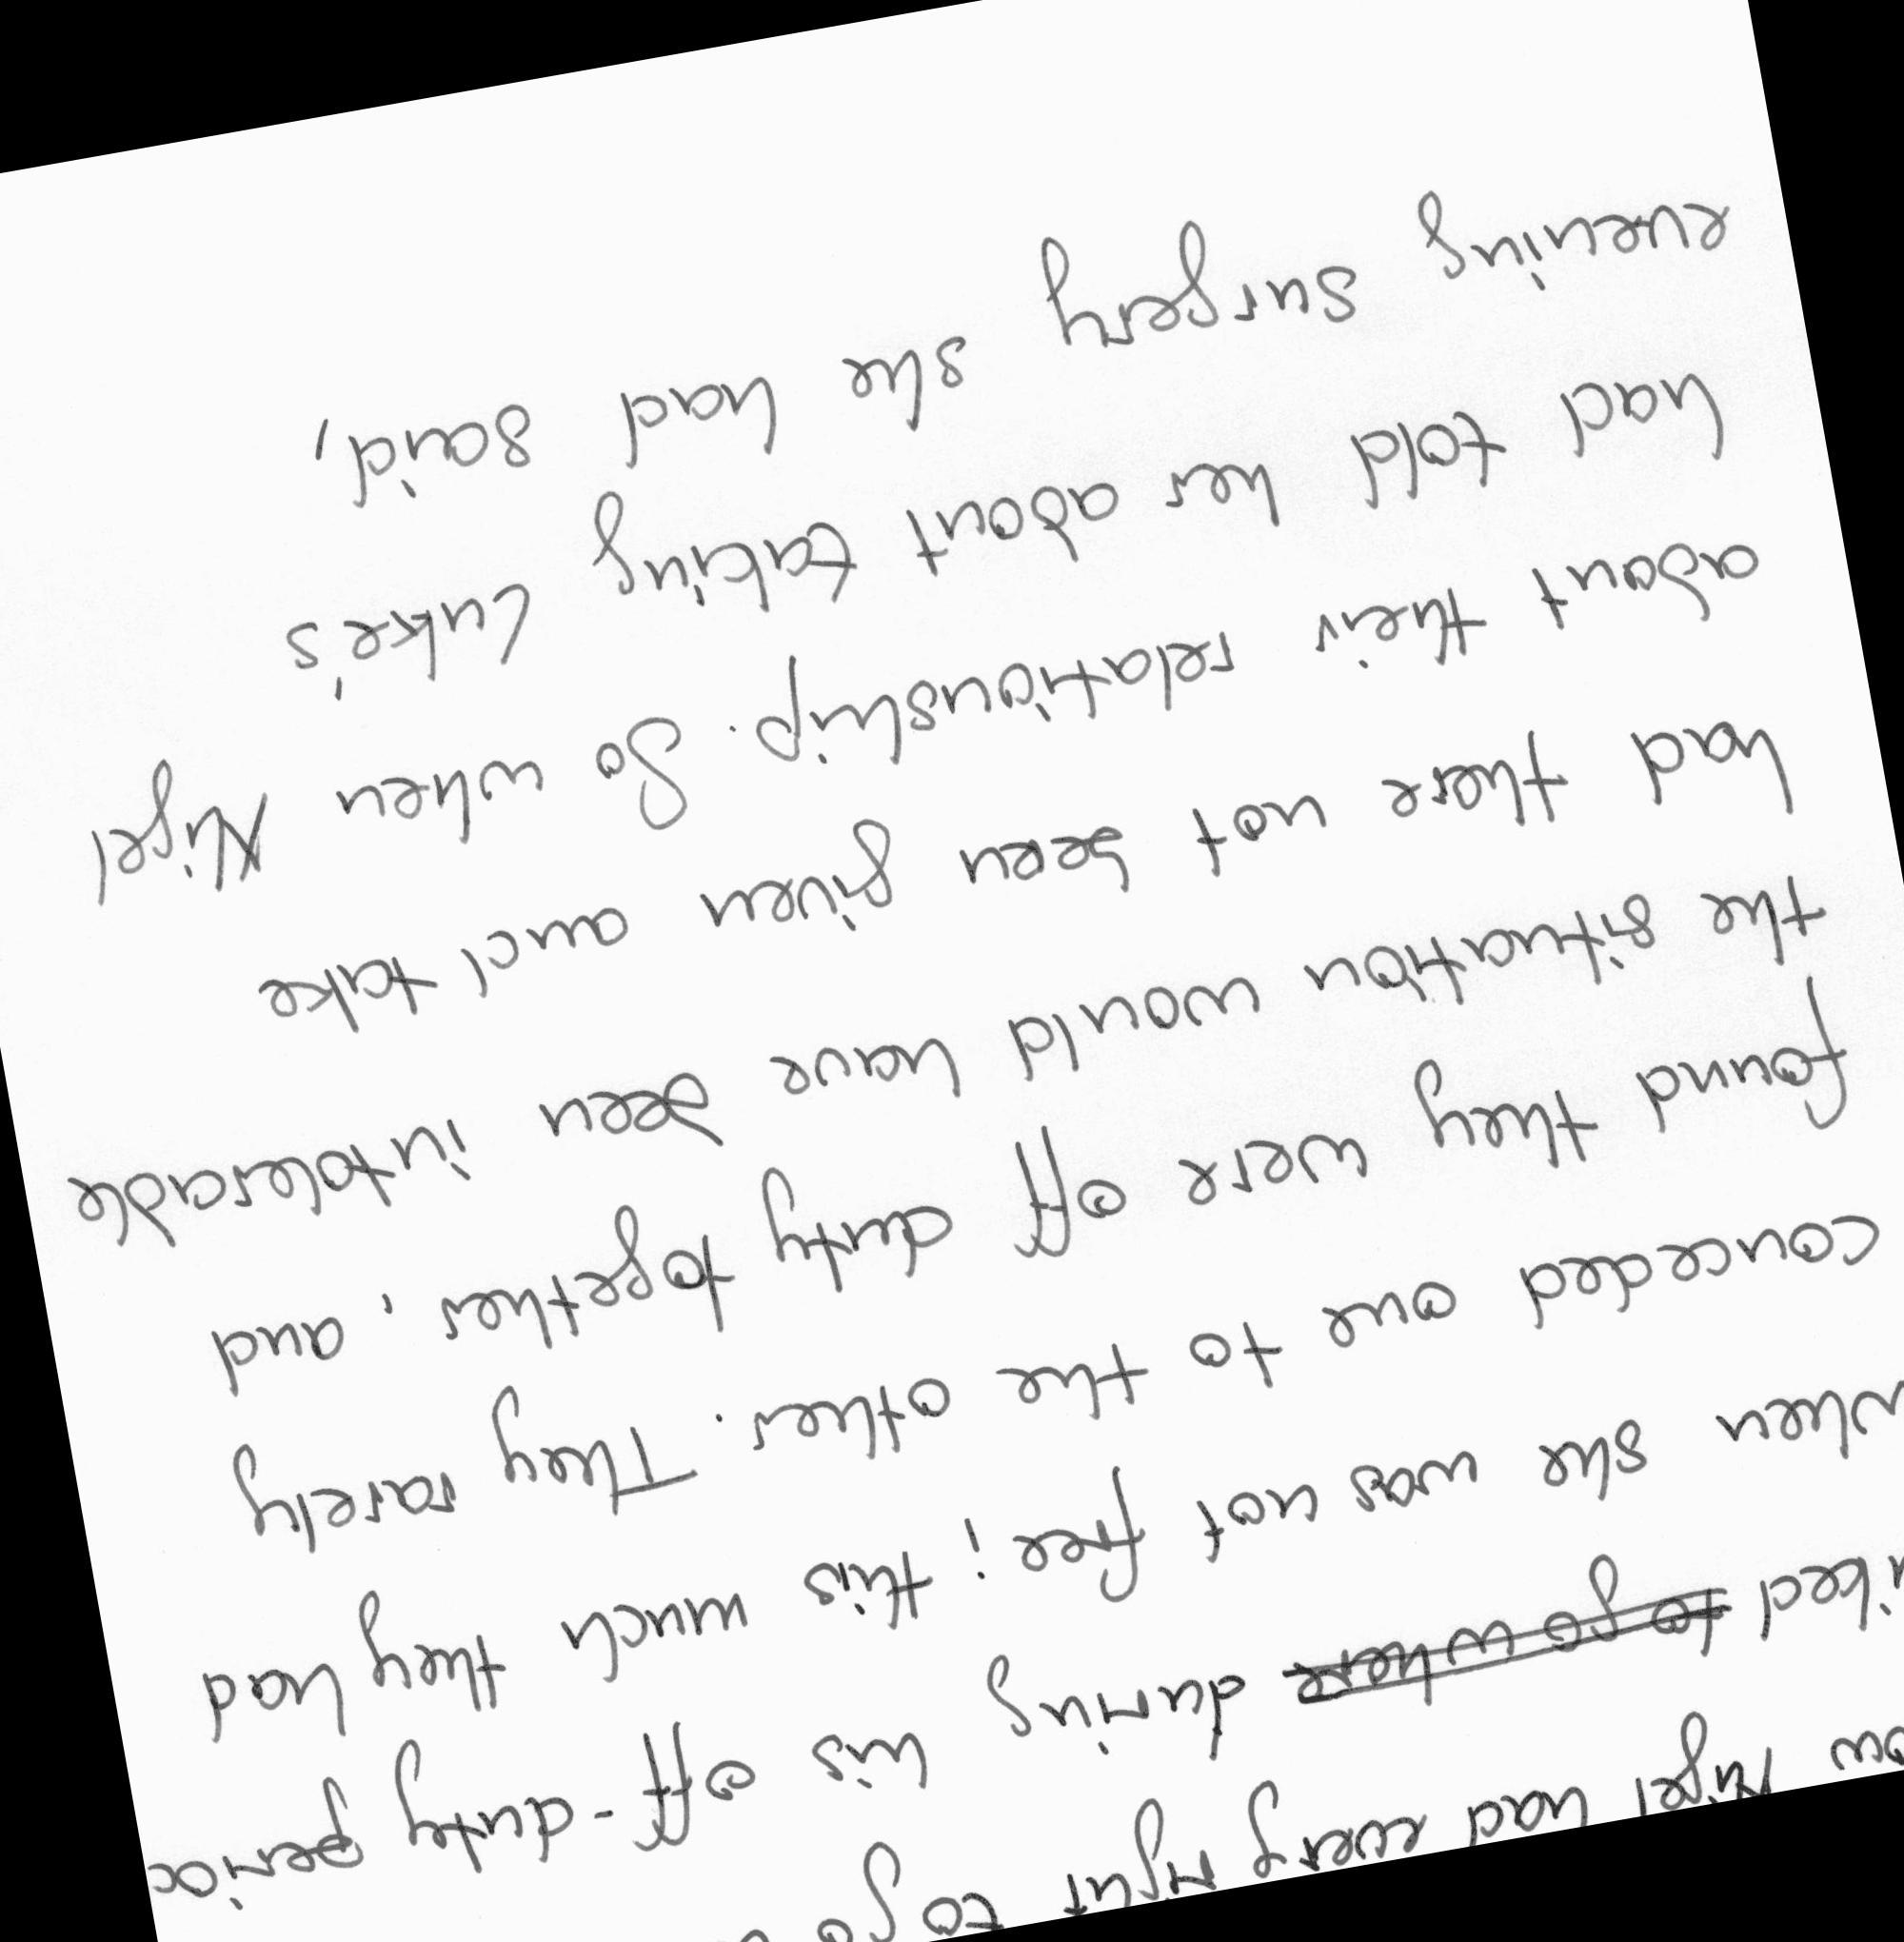 Nigel had every right to go
to go where during his off-duty
when she was not free; this much they had
conceded one to the other. They rarely
found they were off duty together, and
the situation would have been intolerable
had there not been given and take
about their relationship. So when Nigel
had told her about taking Luke's
evening surgery she had said,